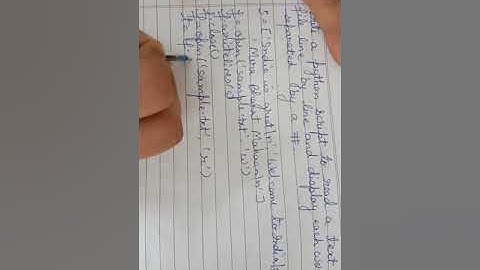 Write a python script to read a text
file line by line and display each word
separated by a #-
s=["India is great\n" "Welcome to India\n"
"Mera Bharat Mahaan\n"]
f=open('sample.txt','w')
f.writelines(s)
f.close()
f=open('sample.txt','r')